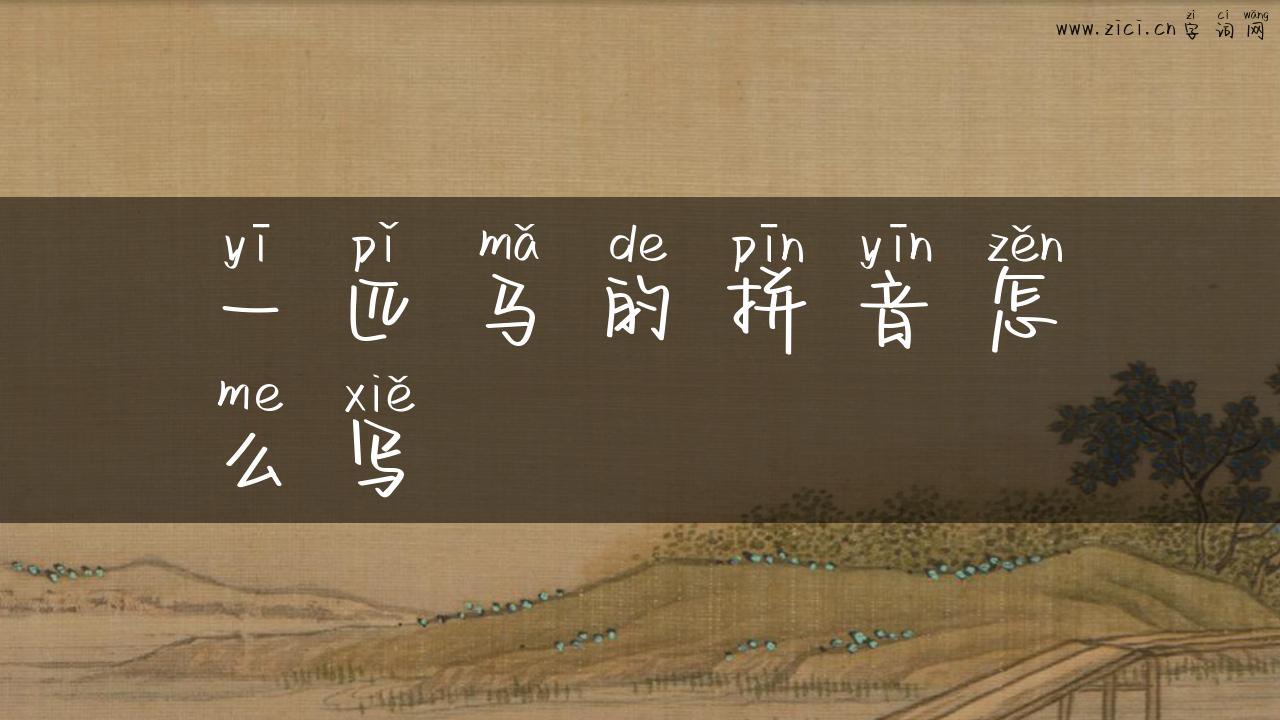 zì cí wǎng
www.zici.cn字词网
yī pǐ mǎ de pīn yīn zěn
一匹马的拼音怎
me xiě
么写